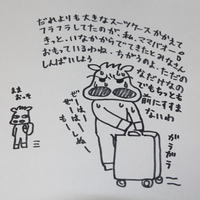 だれよりも大きなスーツケースかかえて
フラフラしてたのが、私、ママバオー。
きっと、いなかからでてきたとみなさん
おもっているわね。ちがうのよ、ただの
しんぱいしょう
なだけなの
でもちっとも
前にすすま
ないわ
まま
おっそ
ぜーはー
ぜーはーし
ぬー
ガラ
ガラ